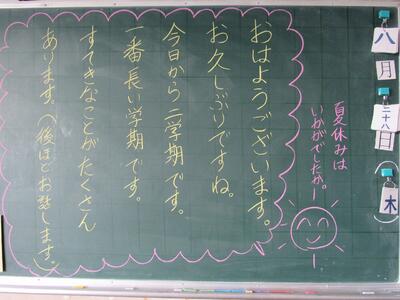 八月二十八日(木)
夏休みは
いかがでしたか。
おはようございます。
お久しぶりですね。
今日から二学期です。
一番長い学期です。
すてきなことがたくさん
あります。(後ほどお話します。)